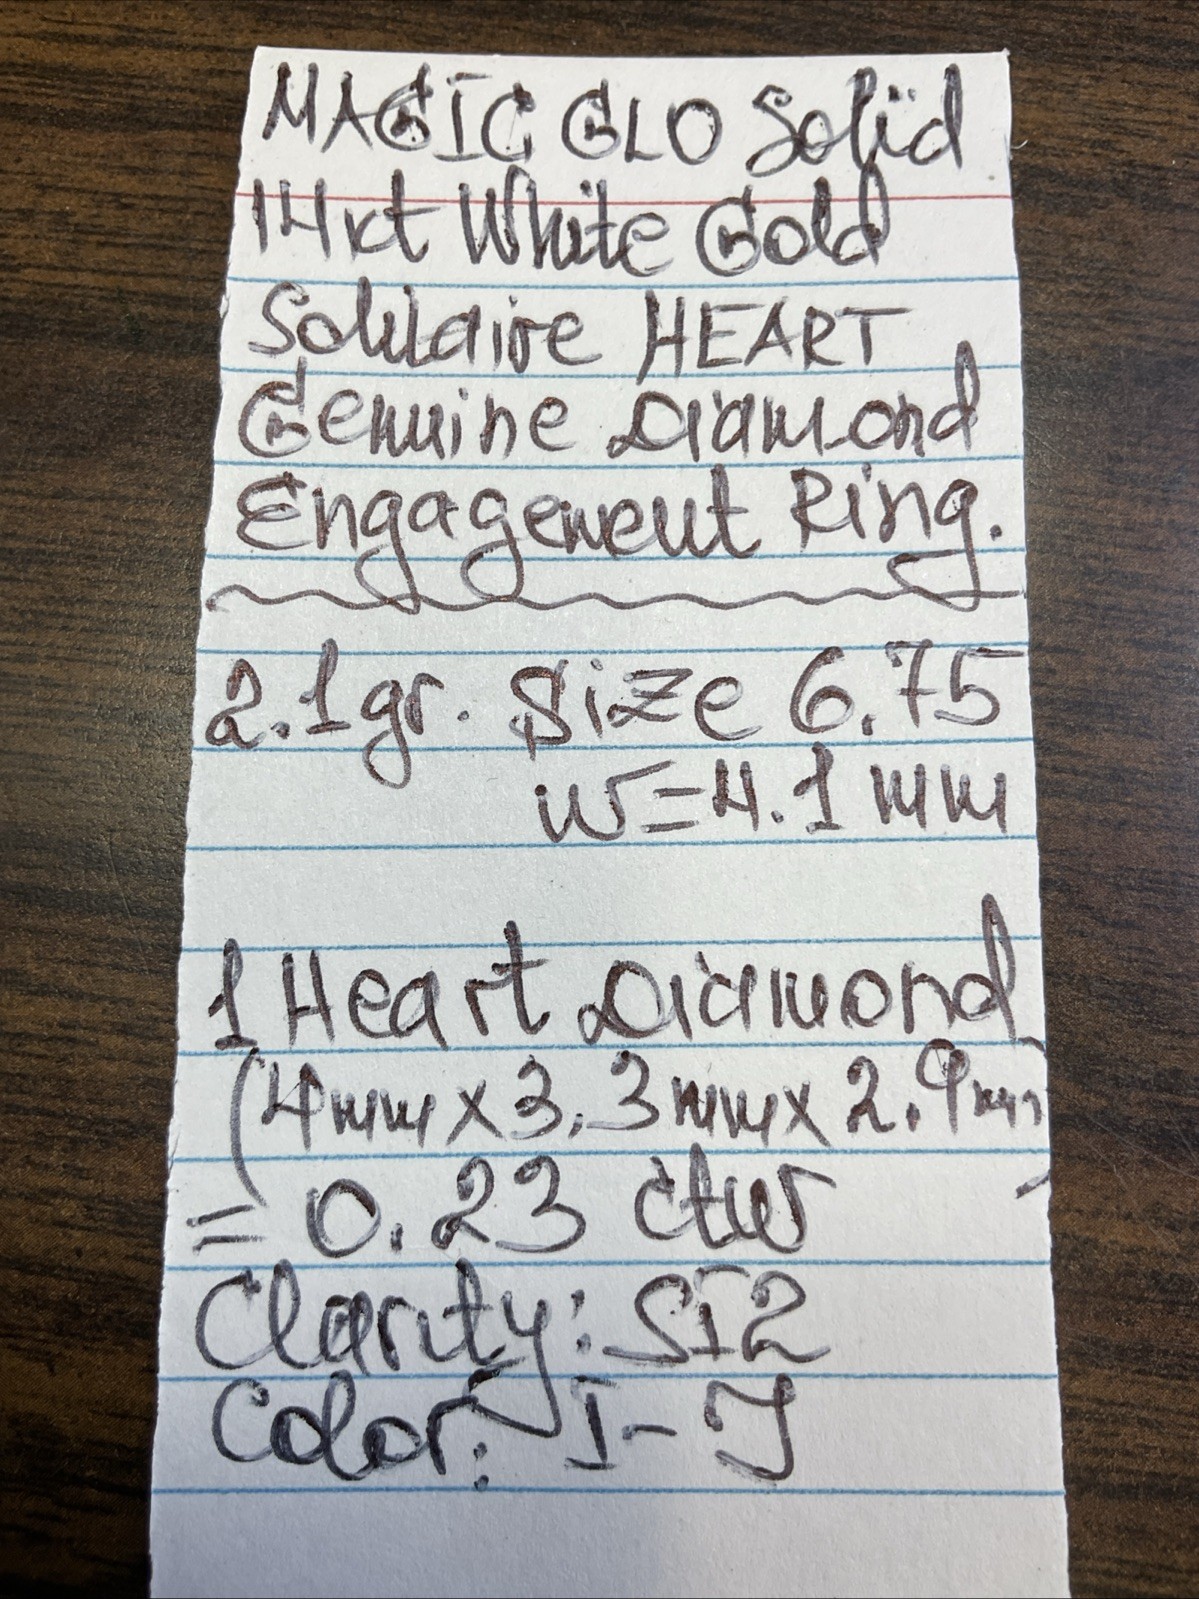 MAGIC GLO Solid
14kt White Gold
Solitaire HEART
Genuine Diamond
Engagement Ring.
2.1gr. Size 6.75
w=4.1 mm
1 Heart Diamond
(4mm x 3.3mm x 2.9mm)
= 0.23 ctw
Clarity: SI2
Color: I-J